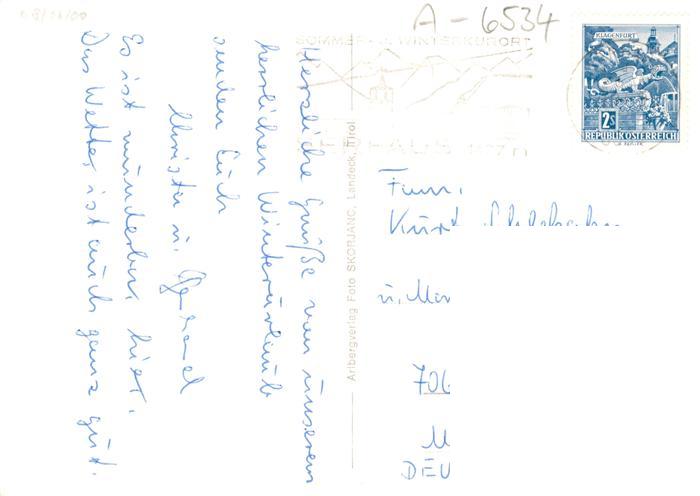 A-6534
SOMMER- u. WINTERKURORT
SERFAUS 1427m
KLAGENFURT
2S
REPUBLIK ÖSTERREICH
Herzliche Grüße von unserem
herrlichen Winterurlaub
senden Euch
Christa u.
Es ist wunderbar hier.
Das Wetter ist auch ganz gut.
Arlbergverlag Foto SKORJANC, Landeck, Tirol
Fam.
Kurt
u.
706
DEU